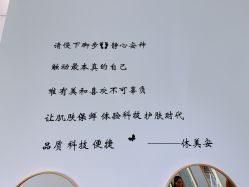 请停下脚步静心安神
触动最本真的自己
唯有美和喜欢不可辜负
让肌肤保鲜 体验科技护肤时代
品质 科技 便捷 ——休美安